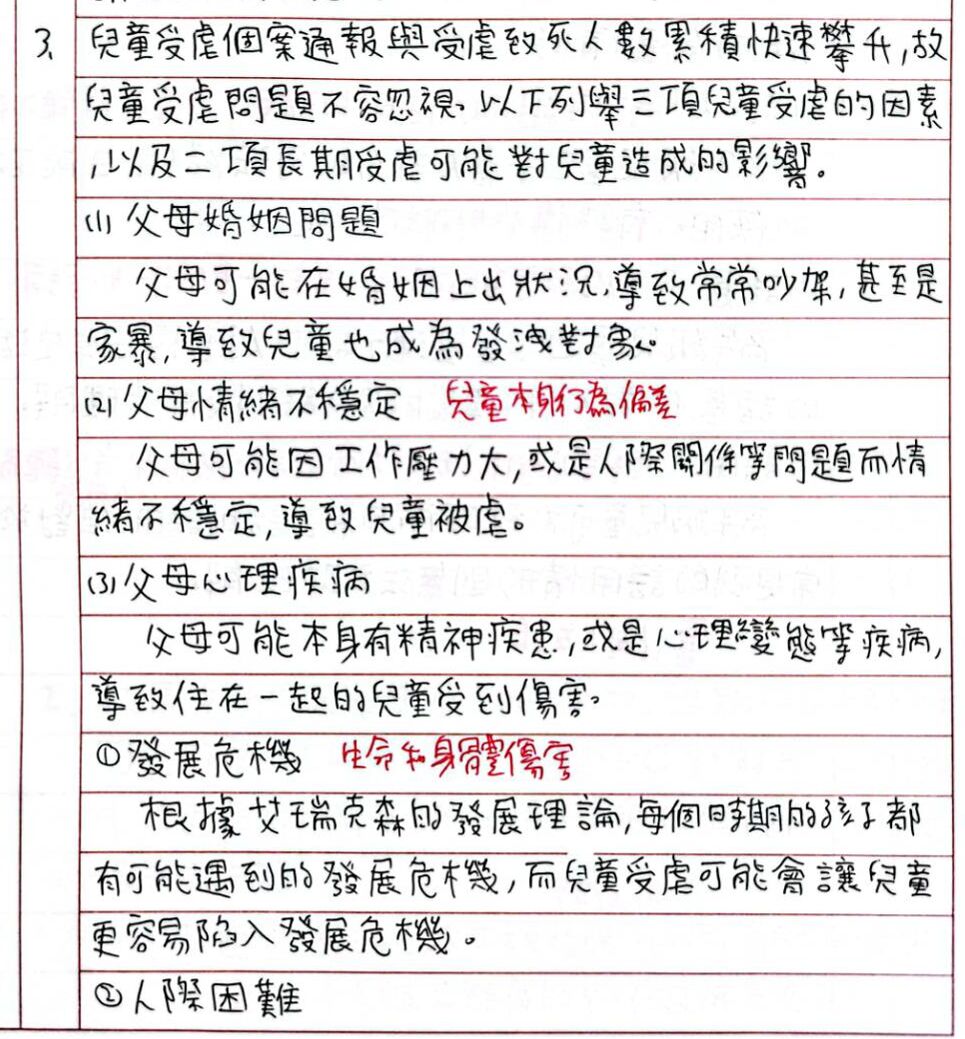 3. 兒童受虐個案通報與受虐致死人數累積快速攀升,故
兒童受虐問題不容忽視。以下列舉三項兒童受虐的因素
,以及二項長期受虐可能對兒童造成的影響。
(1) 父母婚姻問題
父母可能在婚姻上出狀況,導致常常吵架,甚至是
家暴,導致兒童也成為發洩對象。
(2) 父母情緒不穩定 兒童本身行為偏差
父母可能因工作壓力大,或是人際關係等問題而情
緒不穩定,導致兒童被虐。
(3) 父母心理疾病
父母可能本身有精神疾患,或是心理變態等疾病,
導致住在一起的兒童受到傷害。
①發展危機 生命和身體傷害
根據艾瑞克森的發展理論,每個時期的孩子都
有可能遇到的發展危機,而兒童受虐可能會讓兒童
更容易陷入發展危機。
②人際困難